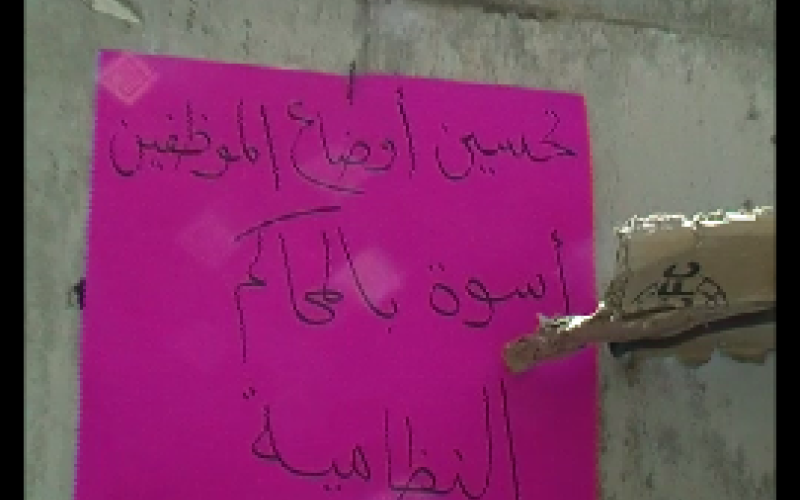 تحسين أوضاع الموظفين
أسوة بالمحاكم
النظامية